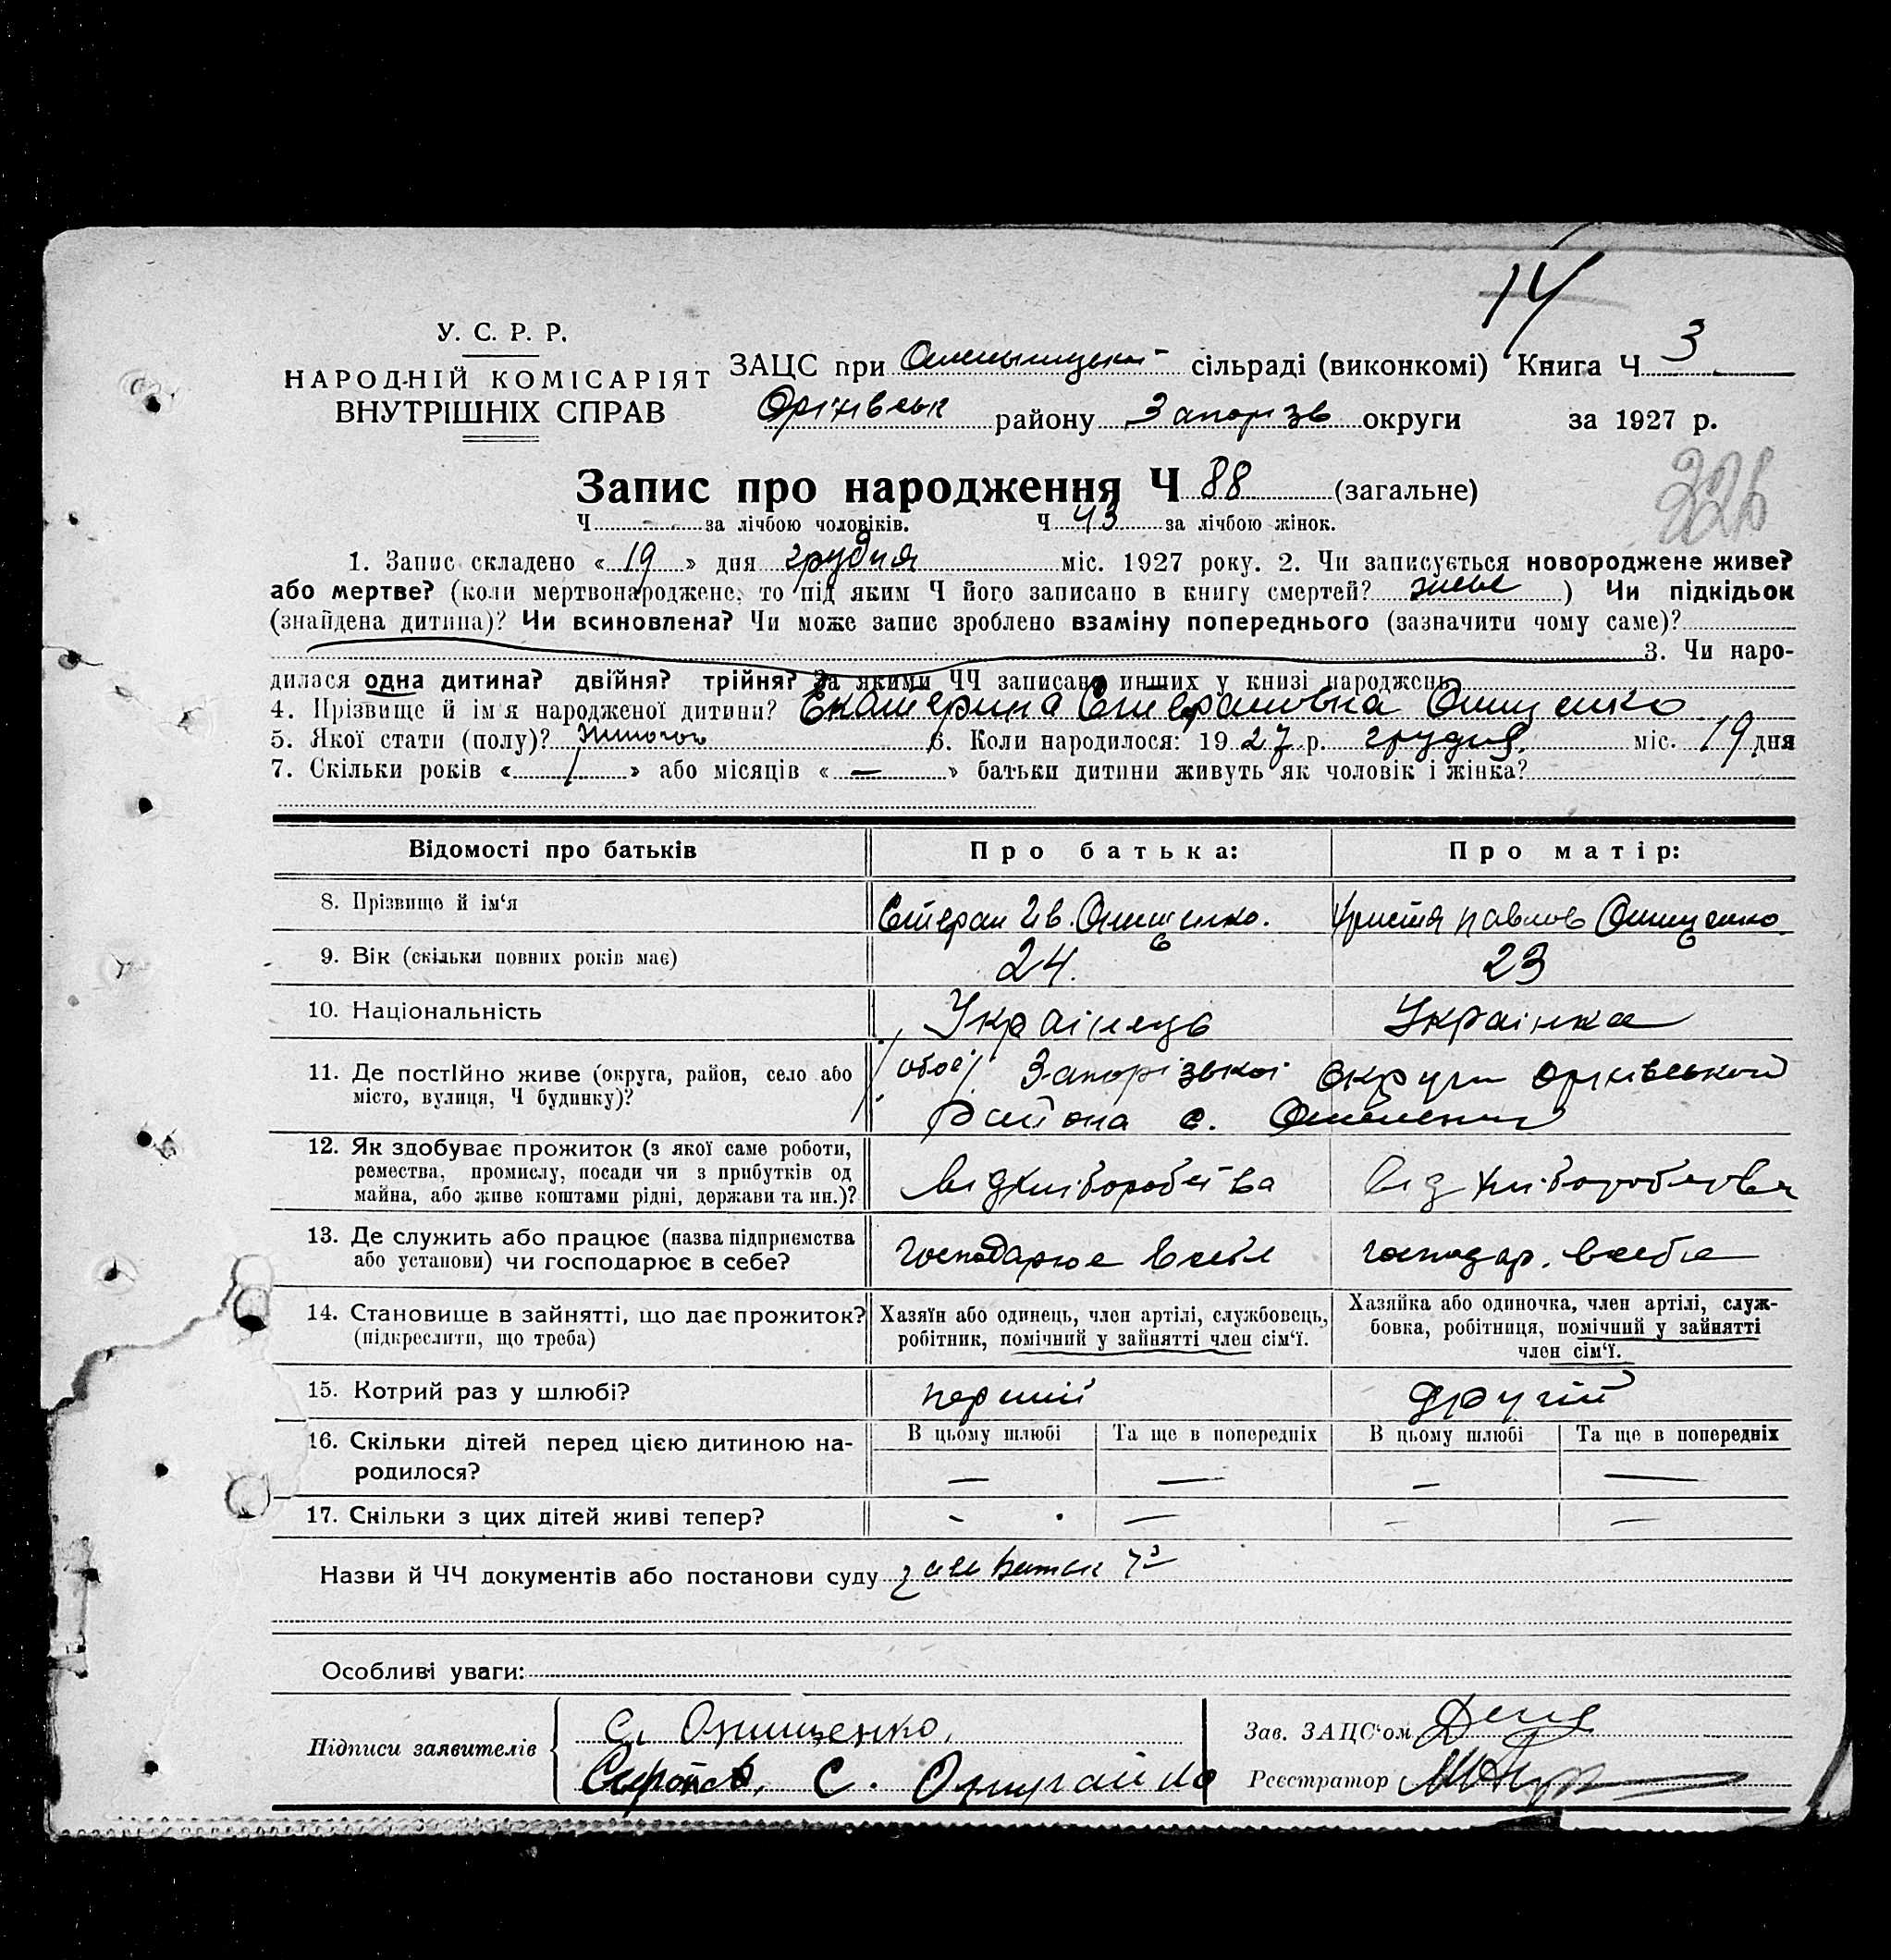 14
У. С. Р. Р.
НАРОДНІЙ КОМІСАРІЯТ
ВНУТРІШНІХ СПРАВ
ЗАЦС при сільраді (виконкомі) Книга Ч 3
Оріхівськ району Запорізь округи за 1927 р.
Запис про народження Ч 88 (загальне)
226
Ч - за лічбою чоловіків. Ч 43 за лічбою жінок.
1. Запис складено « 19 » дня грудня міс. 1927 року. 2. Чи записується новороджене живе?
або мертве? (коли мертвонароджене, то під яким Ч його записано в книгу смертей? живе ) Чи підкідьок
(знайдена дитина)? Чи всиновлена? Чи може запис зроблено взаміну попереднього (зазначити чому саме)?
3. Чи наро-
дилася одна дитина? двійня? трійня? За якими ЧЧ записано инших у книзі народжень
4. Прізвище й ім'я народженої дитини? Екатерина Степановна Онищенко
5. Якої стати (полу)? жіночої 6. Коли народилося: 1927 р. грудня міс. 19 дня
7. Скільки років « 1 » або місяців « — » батьки дитини живуть як чоловік і жінка?
Відомості про батьків Про батька: Про матір:
8. Прізвище й ім'я Степан Ив. Онищенко. Христя Павлов Онищенко.
9. Вік (скільки повних років має) 24. 23
10. Національність Українець Українка
11. Де постійно живе (округа, район, село або обоє Запорізької округи Оріхівськой
місто, вулиця, Ч будинку)? района с.
12. Як здобуває прожиток (з якої саме роботи,
ремества, промислу, посади чи з прибутків од від хліборобства від хліборобства
майна, або живе коштами рідні, держави та ин.)?
13. Де служить або працює (назва підприємства господарює в себе господар. в себе
або установи) чи господарює в себе?
14. Становище в зайнятті, що дає прожиток? Хазяїн або одинець, член артілі, службовець, Хазяйка або одиночка, член артілі, служ-
(підкреслити, що треба) робітник, помічний у зайнятті член сім'ї. бовка, робітниця, помічний у зайнятті
член сім'ї.
15. Котрий раз у шлюбі? перший другій
16. Скільки дітей перед цією дитиною на- В цьому шлюбі Та ще в попередніх В цьому шлюбі Та ще в попередніх
родилося? — — — —
17. Скільки з цих дітей живі тепер? - — — —
Назви й ЧЧ документів або постанови суду
Особливі уваги:
Підписи заявителів С. Онищенко, Зав. ЗАЦС'ом
С. Реєстратор